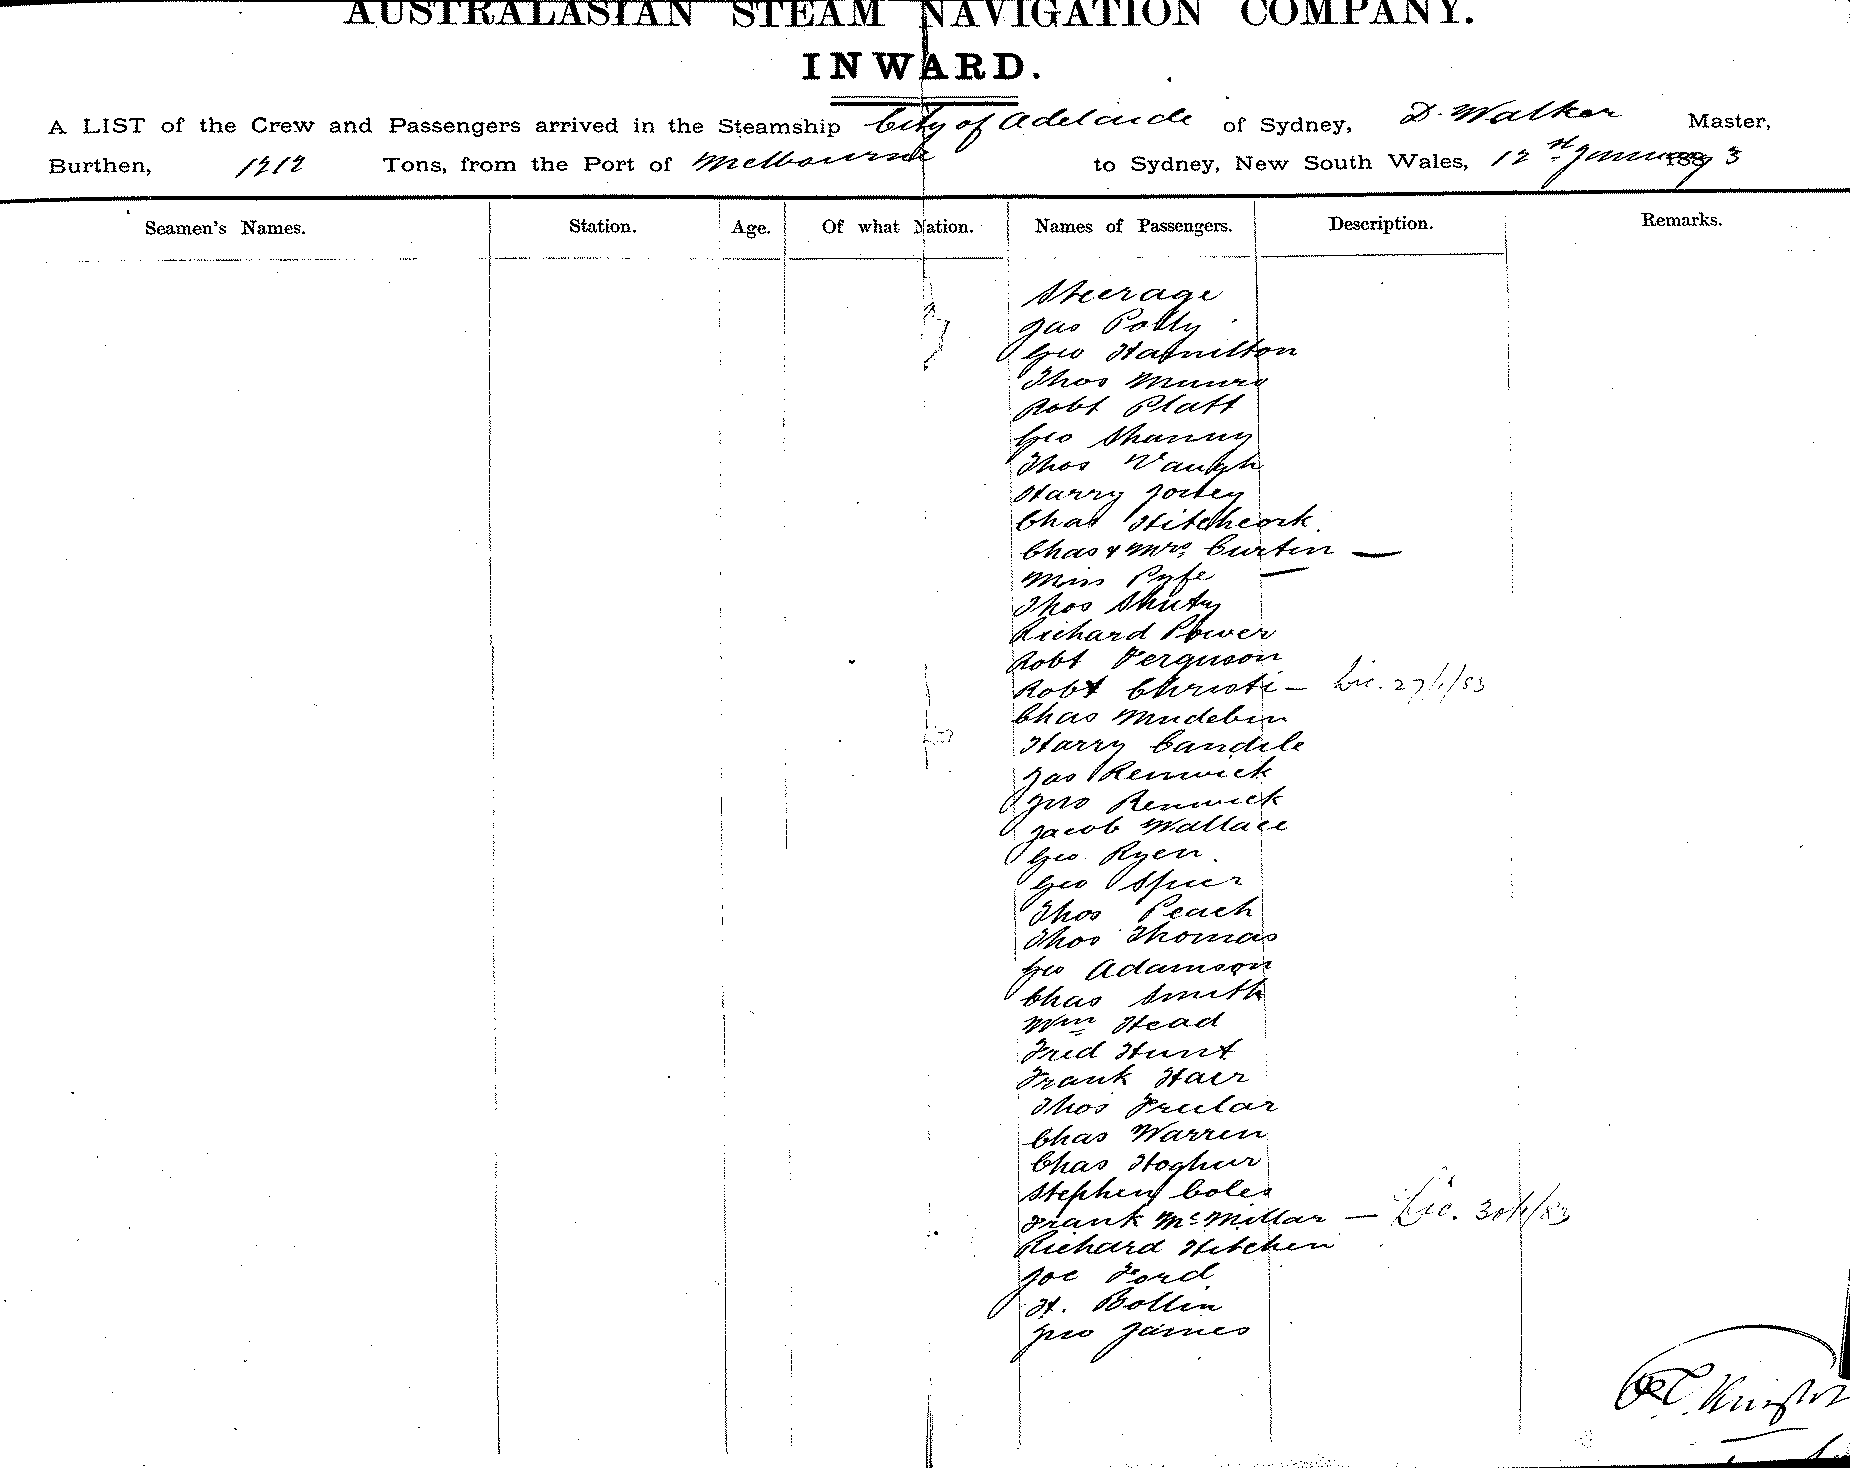 AUSTRALASIAN STEAM NAVIGATION COMPANY.
INWARD.
A LIST of the Crew and Passengers arrived in the Steamship City of Adelaide of Sydney, D. Walker Master,
Burthen, 1212 Tons, from the Port of Melbourne to Sydney, New South Wales, 12th January 1883
Seamen's Names. Station. Age. Of what Nation. Names of Passengers. Description. Remarks.
Steerage
Jas Potty
Geo Hamilton
Thos Munro
Robt Platt
Geo Shanny
Thos Vaugh
Harry
Chas Hitchcock.
Chas & Mrs Curtin —
Miss Pyfe —
Thos Shuty
Richard Power
Robt Ferguson
Robt Christi — Lic. 27/1/83
Chas Mudebin
Harry Candile
Jas Renwick
Jno Renwick
Jacob Wallace
Geo Ryen
Geo Spier
Thos Peach
Thos Thomas
Geo Adamson
Chas Smith
Wm Head
Fred Hunt
Frank Haer
Thos Frular
Chas Warren
Chas Hoghur
Stephen Coles
Frank McMillar — Lic. 30/1/83
Richard Hitchen
Joe Ford
H. Bollin
Jno James